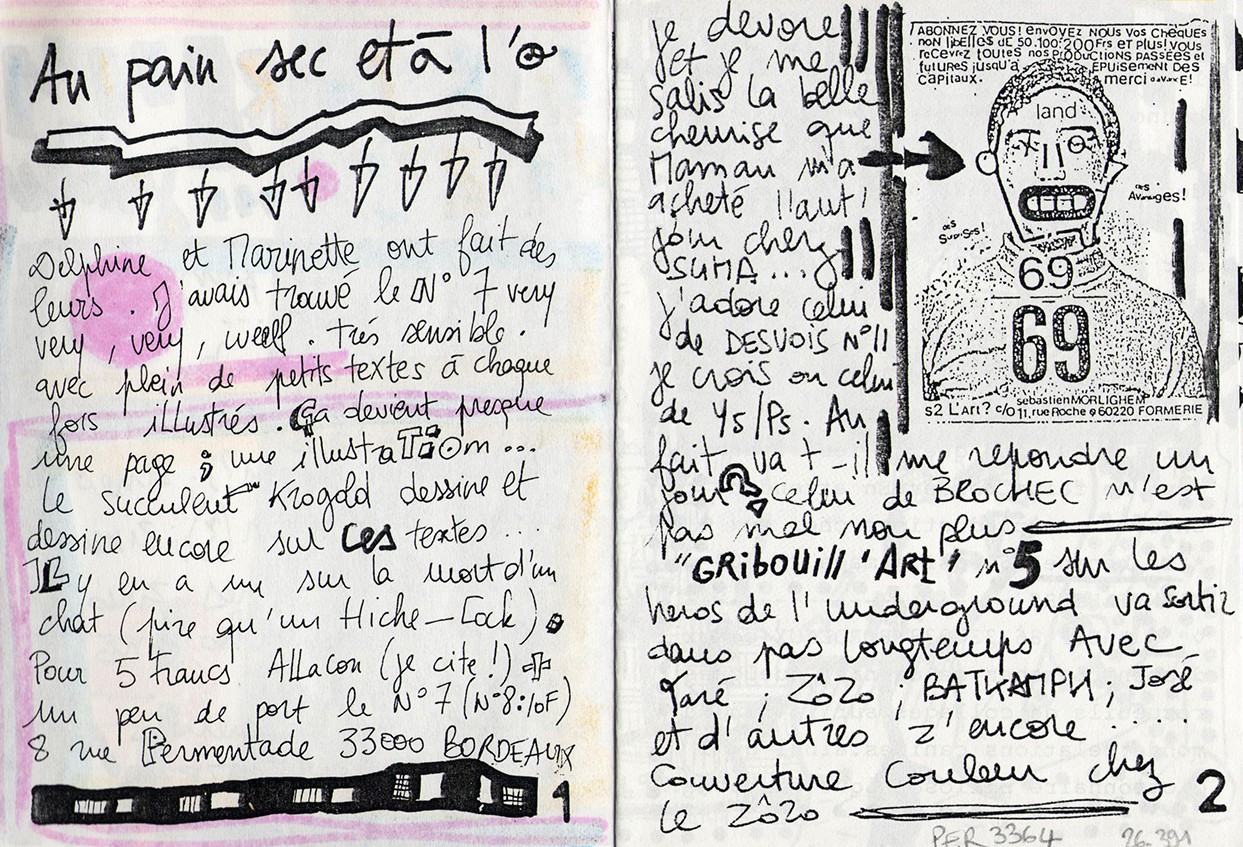 Au pain sec et à l'o
Delphine et Marinette ont fait des
leurs. J'avais trouvé le N° 7 very
very, very, well. très sensible.
avec plein de petits textes à chaque
fois illustrés. Ça devient presque
une page ; une illustration...
Le succulent Krogold dessine et
dessine encore sur ces textes...
Il y en a un sur la mort d'un
chat (pire qu'un Hiche-Cock).
Pour 5 Francs Allacon (je cite!) +
un peu de port le N°7 (N°8:10F)
8 rue Permentade 33000 BORDEAUX
1
je dévore
et je me
salis la belle
chemise que
Maman m'a
acheté l'aut'
jour chez
SUMA...
j'adore celui
de DESVOIS N°11
je crois ou celui
de Ys/Ps. Au
fait va t-il me repondre un
jour ? celui de BROCHEC n'est
pas mal non plus
"GRibouill'ART' n°5 sur les
heros de l'underground va sortir
dans pas longtemps Avec
Taré ; Zôzo ; BATKAMPH ; José
et d'autres z'encore ....
Couverture Couleur chez
le Zôzo
2
ABONNEZ VOUS! envoyez nous vos chèques
non libellés de 50.100.200Frs et plus! vous
recevrez toutes nos productions passées et
futures jusqu'à EPuisement DES
capitaux. merci d'avance!
land
des Avantages!
des Surprises!
69
69
sebastien MORLIGHEM
s2 L'Art? c/o 11, rue Roche 60220 FORMERIE
PER 3364
26.391